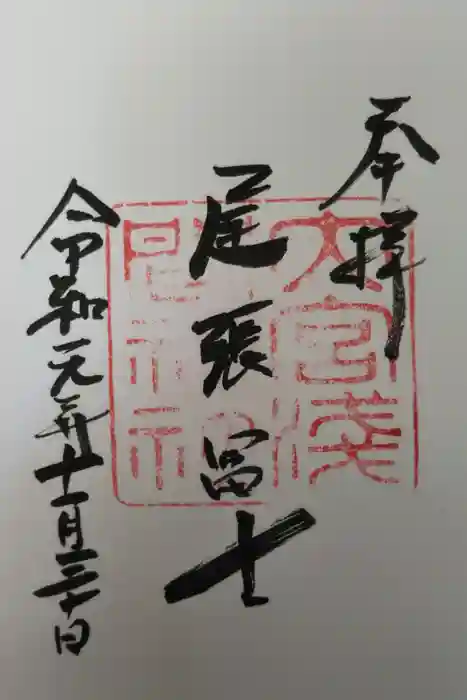 奉拝
尾張冨士
大宮浅間神社
令和元年十一月三十日